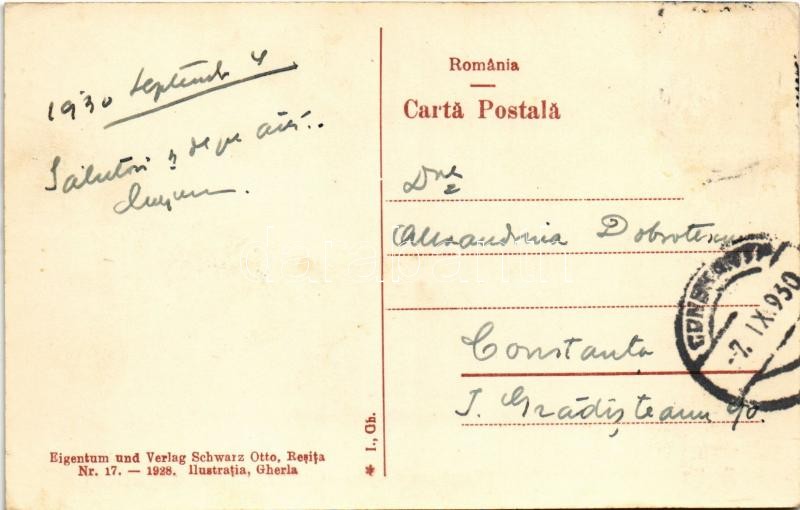 1930 Septemb 4
Salutări și de pe aici..
România
Cartă Postală
Dnei
Alexandrina Dobrotescu
Constanța
I. Grădișteanu 90.
CONSTANTA
-7. IX. 930
* I., Gh.
Eigentum und Verlag Schwarz Otto, Reșița
Nr. 17. — 1928. Ilustrația, Gherla